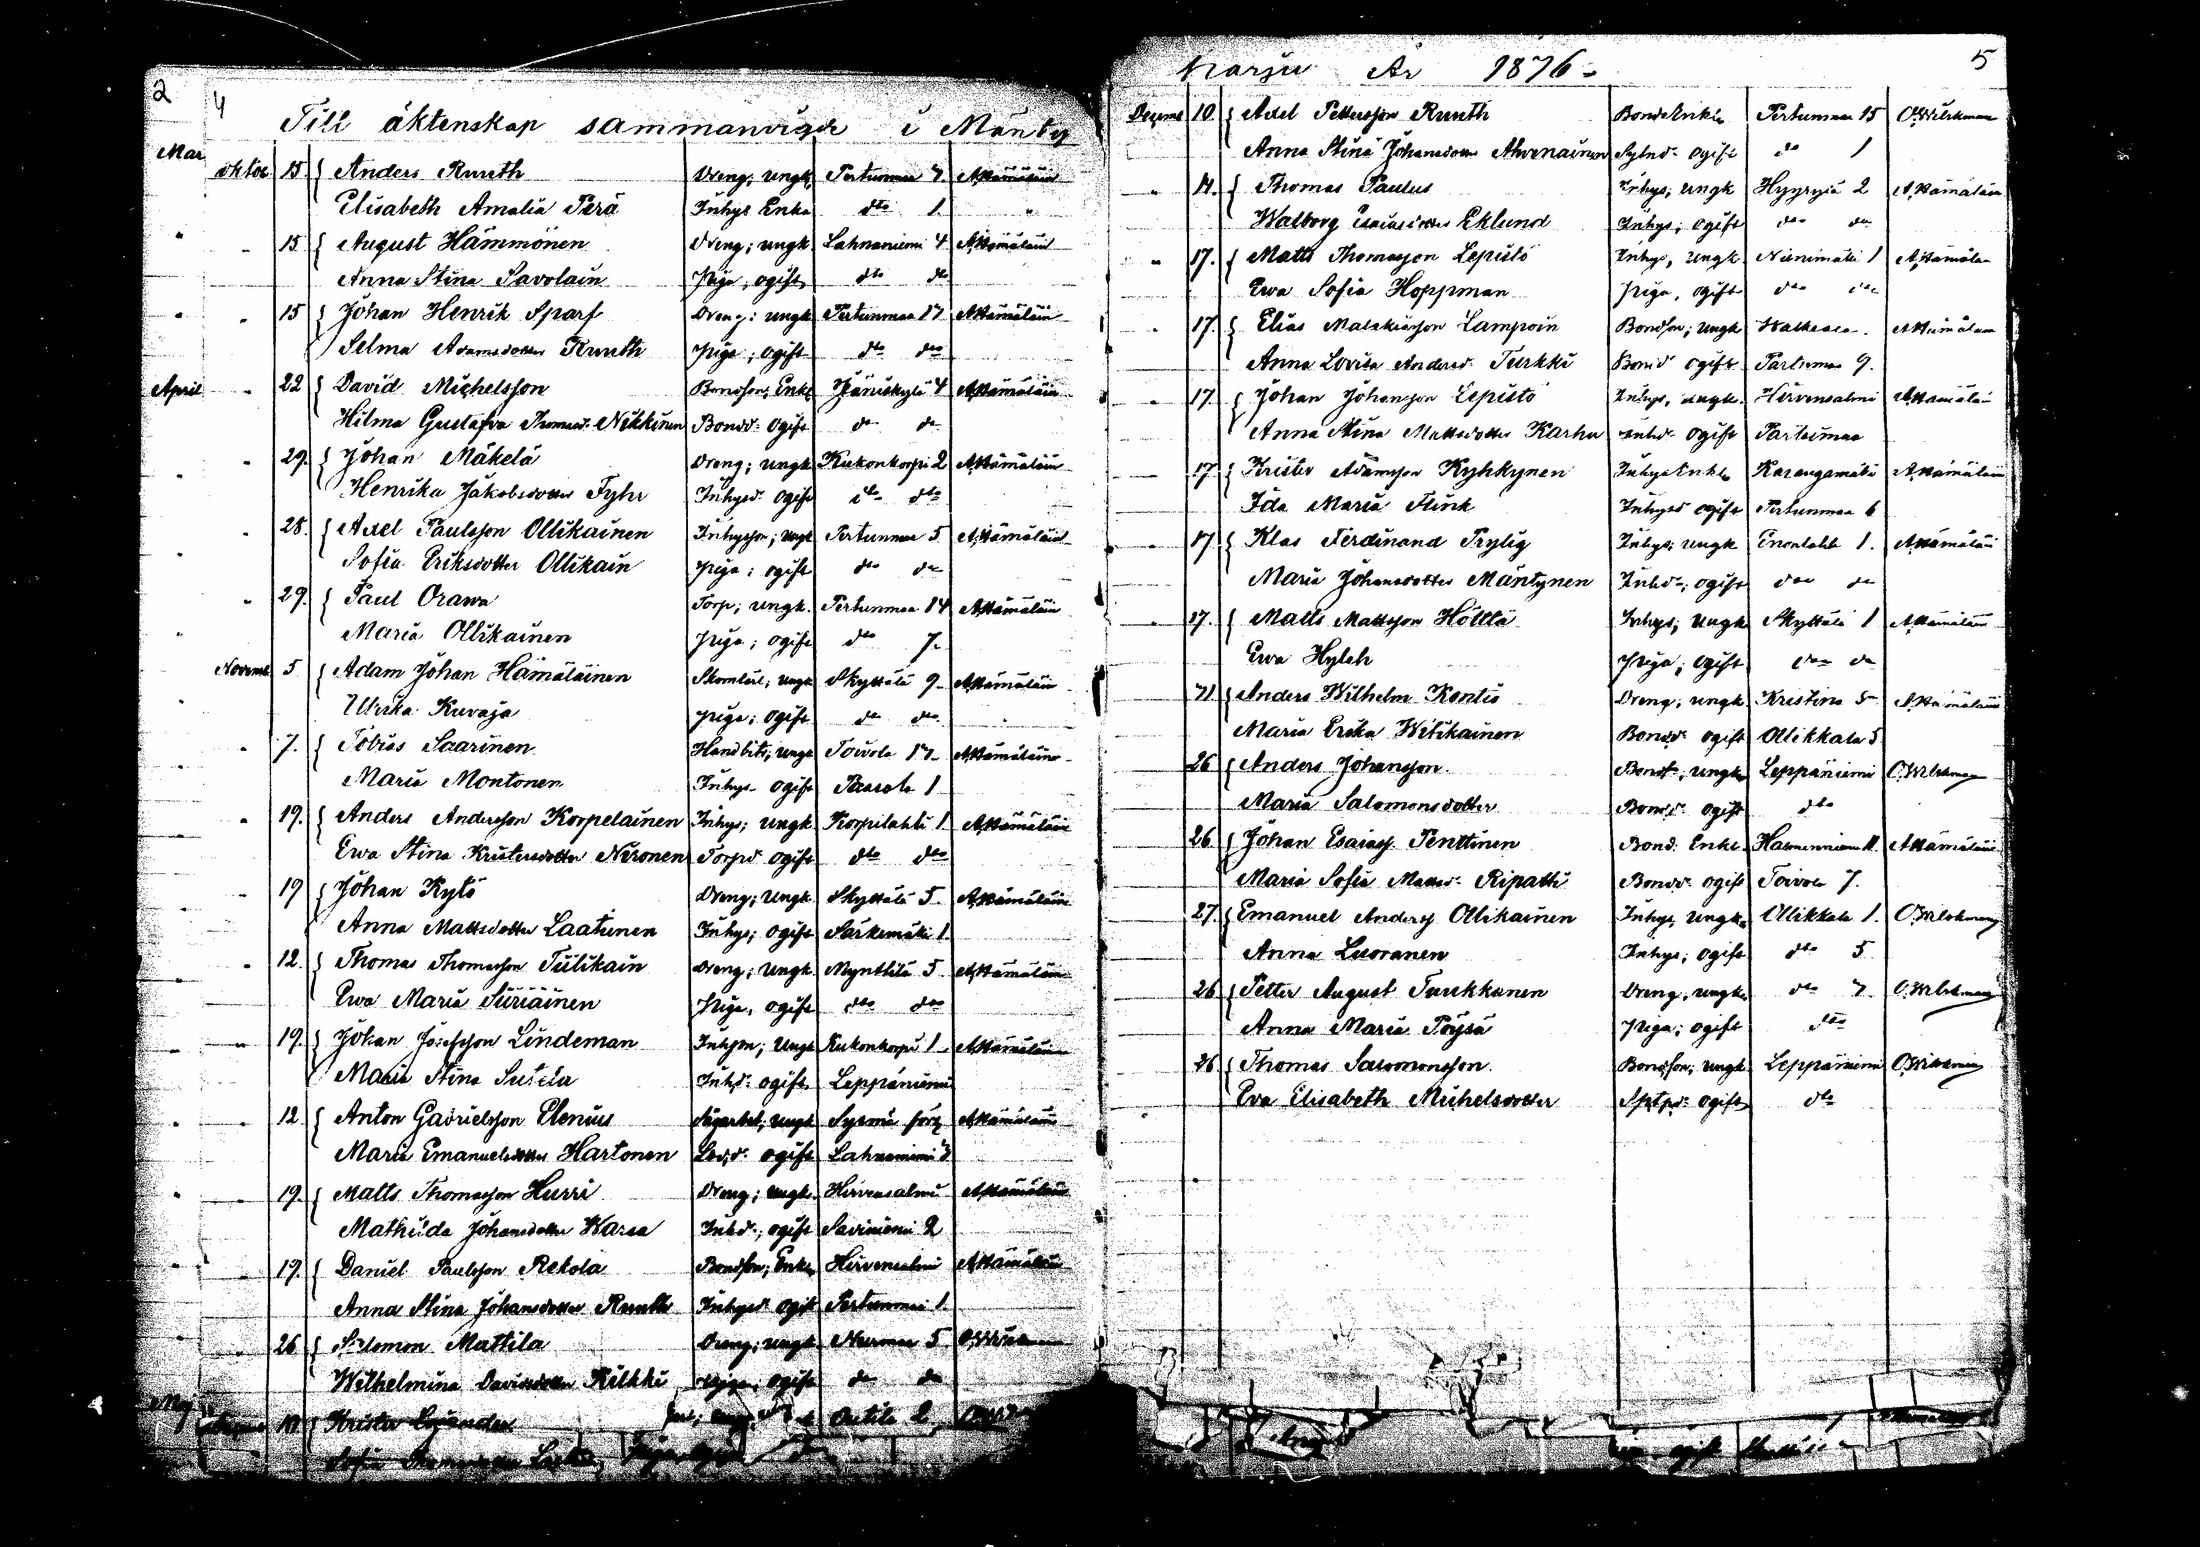 2
4
Till äktenskap sammanvigde i Mänty
Mar
oktob 15 Anders Ruuth Dreng; ungk Pertunmaa 7 A.Hämäläin
Elisabeth Amalia Perä Inhys Enka dto 1. "
" " 15 August Hämmönen Dreng; ungk Lahnaniemi 4 A.Hämäläin
Anna Stina Savolain Piga, ogift dto do
" " 15 Johan Henrik Sparf Dreng: ungk Pertunmaa 17 A.Hämäläin
Selma Adamsdotter Ruuth Piga; ogift dto do
April " 22 David Michelsson Bondson; Enkl 4 A.Hämäläin
Hilma Gustafva Thomasd. Nikkinen Bondd. ogift do do
" 29. Johan Mäkelä Dreng; ungk Kukonkorpi 2 A.Hämäläin
Henrika Jakobsdotter Fyhr Inhysd. ogift do dto
" 28. Axel Paulsson Ollikainen Inhysson; ungk Pertunmaa 5 A.Hämäläin
Sofia Eriksdotter Ollikain Piga: ogift do do
" 29. Paul Orawa Torp; ungk. Pertunmaa 14 A.Hämäläin
Maria Ollikainen Piga; ogift do 7.
Novemb 5 Adam Johan Hämäläinen ungk Skyttälä 9 A.Hämäläin
Ulrika Kuvaja Piga; ogift do do
" 7. Tobias Saarinen ungk Toivola 17 A.Hämäläin
Maria Montonen Inhys ogift 1
" 19. Anders Andersson Korpelainen Inhys; ungk Korpilahti 1. A.Hämäläin
Ewa Stina Kristersdotter Nironen Torpd ogift dto dto
" 19 Johan Kytö Dreng; ungk Skyttälä 5. A.Hämäläin
Anna Mattsdotter Laatunen Inhys; ogift Särkemäki 1.
" 12. Thomas Thomasson Tiilikain Dreng; ungk Mynttilä 5 A.Hämäläin
Ewa Maria Siiriäinen Piga, ogift dto dto
" 19. Johan Josefsson Lindeman ungk Kukonkorpi 1 A.Hämäläin
Maria Stina Sutela Inhd: ogift Leppäniemi
" 12 Anton Gabrielsson Elenius ungk Sysmä A.Hämäläin
Maria Emanuelsdotter Hartonen ogift Lahnaniemi 3
" 19. Matts Thomasson Hurri Dreng; ungk Hirvensalmi A.Hämäläin
Mathilda Johansdotter Warsa Inhd; ogift Saviniemi 2
" 19. Daniel Paulsson Rekola Bondson; Enkl Hirvensalmi A.Hämäläin
Anna Stina Johansdotter Ruuth Inhysd ogift Pertunmaa 1.
" 26 Salomon Mattila Dreng; ungk Nurmaa 5 O.Wilskman
Wilhelmina Davidsdotter Riikki Piga; ogift do do
Maj Krister Outila 2
Sofia
Harju År 1876.
5
Decemb 10. Axel Pettersson Ruuth Bond Enkl Pertunmaa 15 O.Wilskman
Anna Stina Johansdotter Ahvenainen Sytnd. ogift do 1
" 14. Thomas Paulus Inhys; ungk Hyyryiä 2 A.Hämäläin
Walborg Esaiasdotter Eklund Inhys; ogift do do
" 17. Matts Thomasson Lepistö Inhys, ungk Nienimäki 1 A.Hämäläin
Ewa Sofia Hoppman Piga, ogift do do
" 17. Elias Malakiasson Lampoin Bondson; ungk Walkeala A.Hämäläin
Anna Lovisa Andersd. Turkki Bond ogift Partimaa 9.
" 17. Johan Johansson Lepistö Inhys, ungk. Hirvensalmi A.Hämäläin
Anna Stina Mattsdotter Karhu Inhd. ogift Partsimaa
" 17 Krister Adamsson Kyhkynen Inhys Enkl Karangamäki A.Hämäläin
Ida Maria Flink Inhysd ogift Pertunmaa 6
" 17 Klas Ferdinand Prylig Inhys; ungk Enonlahti 1. A.Hämäläin
Maria Johansdotter Mäntynen Inhd; ogift do do
" 17. Matts Mattsson Hölttä Inhys; ungk Skyttälä 1 A.Hämäläin
Ewa Hyleh Piga; ogift do do
21 Anders Wilhelm Kontis Dreng; ungk Kristina 5 A.Hämäläin
Maria Erika Witikainen Bondd. ogift Ollikkala 5
26 Anders Johansson Bond; ungk Leppäniemi O.Wilskman
Maria Salomonsdotter Bondd. ogift dto
26 Johan Esaiass. Penttinen Bond. Enkl. A.Hämäläin
Maria Sofia Mattsd. Ripatti Bondd. ogift Toivola 7.
27. Emanuel Anderss Ollikainen Inhys, ungk Ollikkala 1. O.Wilskman
Anna Luoranen Inhys; ogift dto 5
26 Petter August Turkkanen Dreng, ungk. do 7. O.Wilskman
Anna Maria Pöysä Piga; ogift dto
26 Thomas Salomonsson Bondson; ungk Leppäniemi O.Wilskman
Eva Elisabeth Michelsdotter ogift dto
ogift